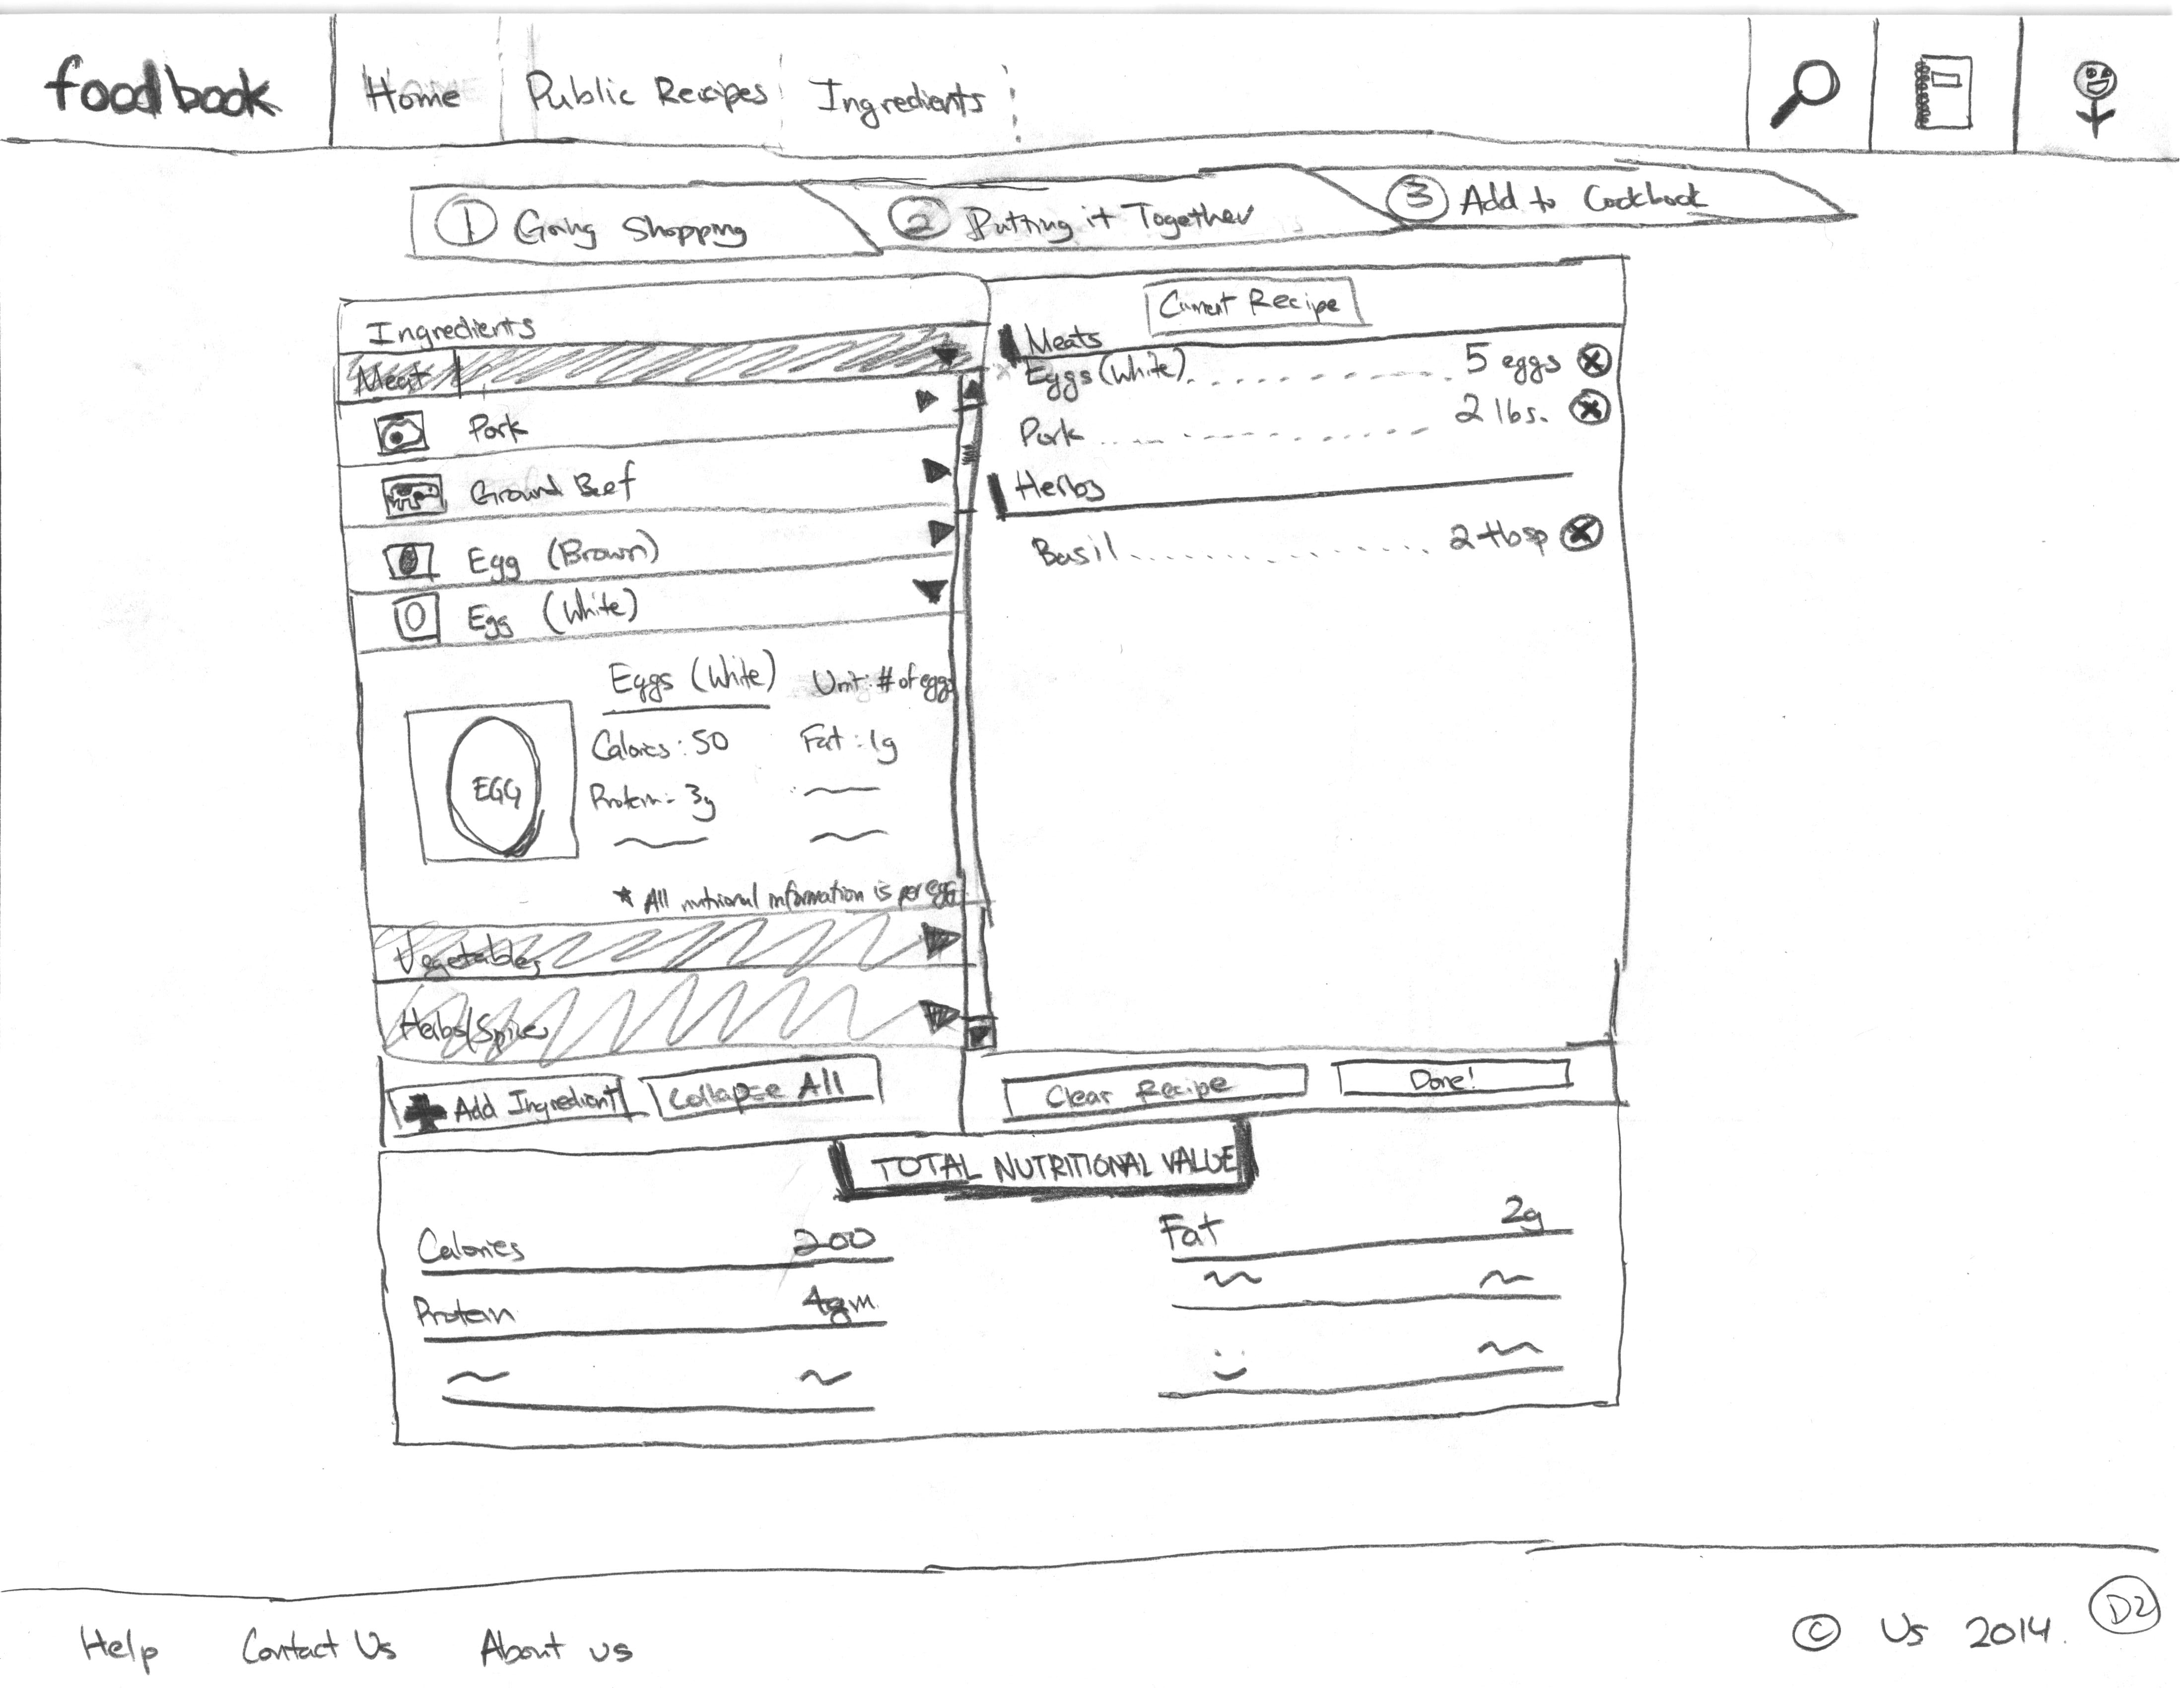 foodbook
Home
Public Recipes
Ingredients
1 Going Shopping
2 Putting it Together
3 Add to Cookbook
Ingredients
Meat
Pork
Ground Beef
Egg (Brown)
Egg (White)
Eggs (White) Unit: # of eggs
Calories: 50 Fat: 1g
EGG
Protein- 3g
* All nutrional information is per egg
Vegetables
Herbs/Spices
Add Ingredient
Collapse All
Current Recipe
Meats
Eggs (White) 5 eggs
Pork 2 lbs.
Herbs
Basil 2 tbsp
Clear Recipe
Done!
TOTAL NUTRITIONAL VALUE
Calories 200
Fat 2g
Protein 4gm.
Help
Contact Us
About us
© Us 2014.
D2